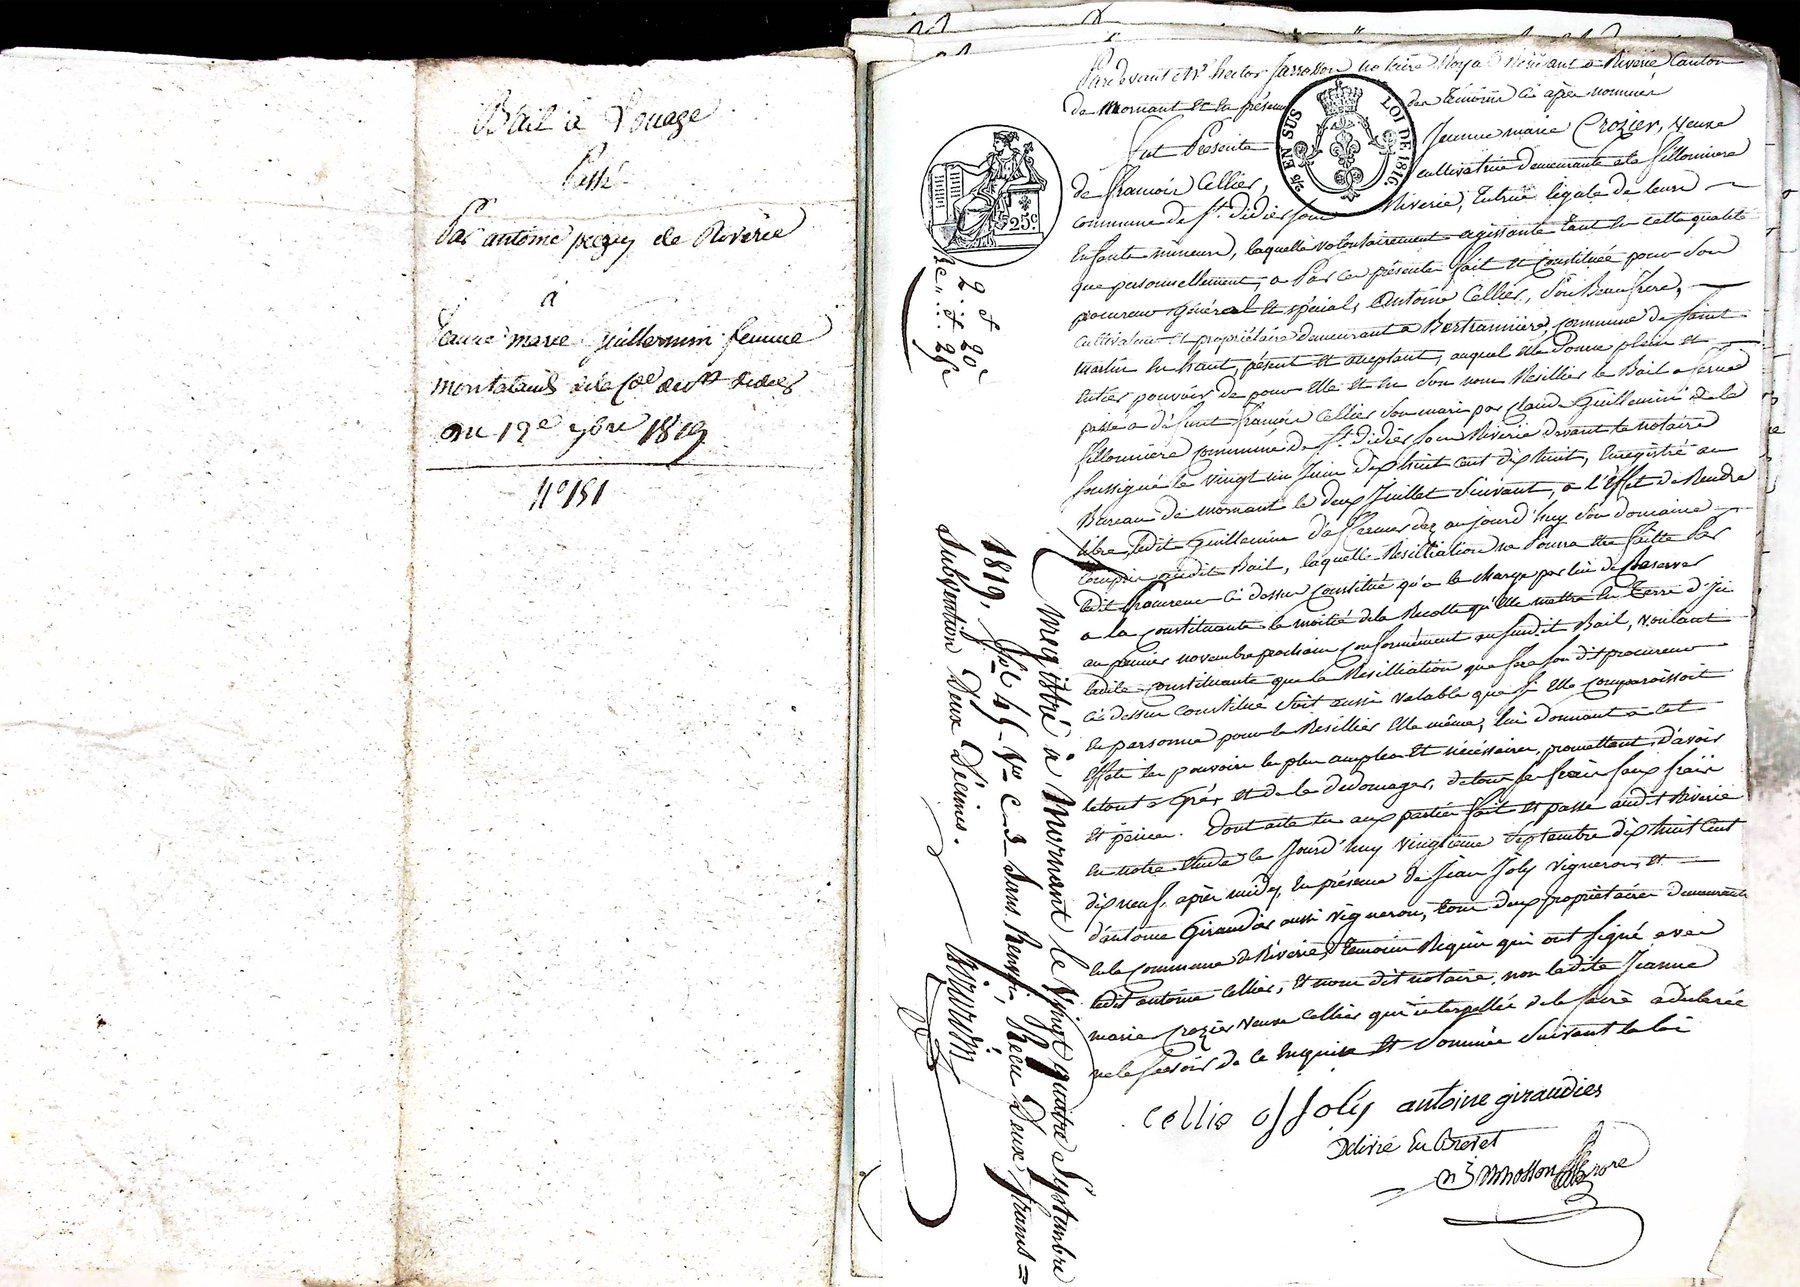 Bail à Louage
Passé
Par antoine pezey de Riverie
à
Jeanne marie Guillermin femme
montaland de la Cne de St didier
du 12e 9bre 1819
N° 151
Pardevant Me hector farrosson notaire Royal Résidant a Riverie, Canton
de Mornant et en présence des témoins ci après nommés
Fut Présente Jeanne marie Crozier, veuve
de françois Cellier, cultivatrice demeurante a la fillonniere
commune de St didier sous Riverie, tutrice légale de leurs
Enfants mineurs, laquelle volontairement agissante tant en cette qualité
que personnellement, a Par ces présentes fait et Constituée pour Son
procureur général et spécial, Antoine Cellier, Son Beaufrere,
Cultivateur et propriétaire demeurant a Bertranniere, Commune de saint
martin en haut, présent et acceptant, auquel elle donne plein et
entier pouvoir de pour elle et en Son nom Resillier le Bail a ferme
passé a défunt françois Cellier Son mari par Claude Guillermin de la
fillonniere commune de St didier sous Riverie devant le notaire
soussigné le vingt un Juin dix huit cent dix huit, Enregistré au
Bureau de mornant le deux Juillet Suivant, a l'Effet de Rendre
libre, ledit Guillermin des fermes dez aujourd'huy Son domaine
compris audit Bail, laquelle Resilliation ne Pourra être faitte Par
ledit Procureur Ci dessus Constitué qu'a la charge par lui de Reserver
a la Constituante la moitié de la Recolte qu'elle mettra en terre d'Ici
au premier novembre prochain Conformément au susdit Bail, voulant
ladite Constituante que la Resilliation que fera Son dit procureur
Ci dessus Constitué Soit aussi valable que si elle Comparoissoit
en personne pour la Resillier elle même, lui donnant a cet
effet les pouvoirs les plus amples et nécéssaires, promettant d'avoir
le tout a Gré, et de le dédomager, de tous ses frais faux frais
et peines. Dont acte lu aux parties fait et passé audit Riverie
en notre étude le Jourd'huy vingtieme Septembre dix huit Cent
dix neuf, après midy, en présence de Jean Joly vigneron, et
d'antoine Giraudier aussi vigneron, tous deux propriétaires demeurants
en la Commune de Riverie, témoins Requis qui ont signé avec
ledit antoine Cellier, et nous dit notaire, non ladite Jeanne
marie Crozier veuve Cellier qui interpellée de le faire a declarée
ne le scavoir de ce enquise et Sommée Suivant la loi
Cellie of Joly antoine giraudier
Délivré En Brevet
25 EN SUS
LOI DE 1816.
25 c.
2 f 20c
Enregistré à Mornant le Vingt quatre Septembre
1819, fol 45 Vo C 3 Sans Renvoi, Reçu Deux francs
Subvention Deux Décimes.